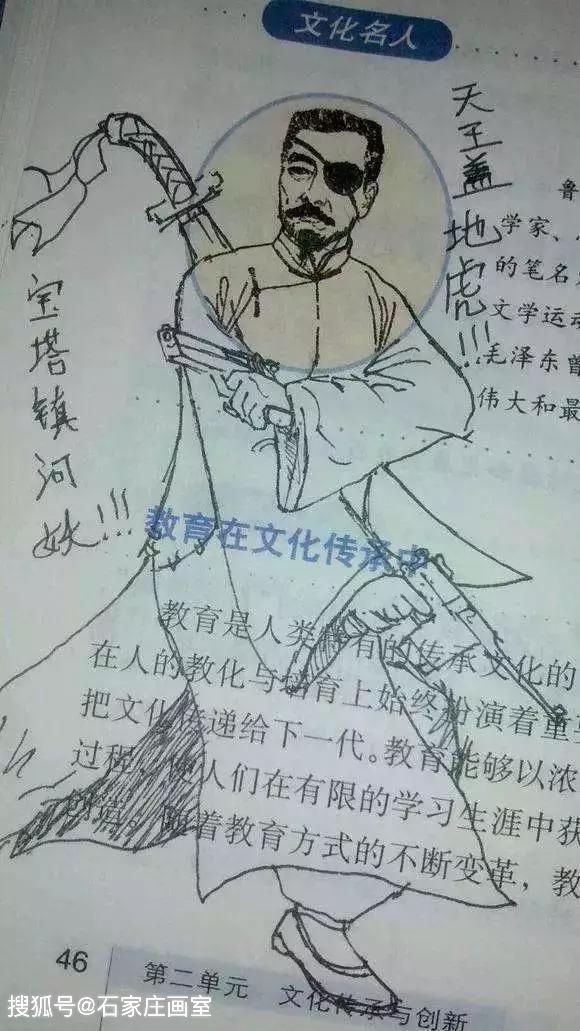 文化名人
天王盖地虎!!!
宝塔镇河妖!!!
鲁
学家、
的笔名
文学运动
毛泽东曾
伟大和最
教育在文化传承中
教育是人类特有的传承文化的
在人的教化与培育上始终扮演着重
把文化传递给下一代。教育能够以浓
过程，使人们在有限的学习生涯中获
随着教育方式的不断变革，教
46
第二单元 文化传承与创新
搜狐号@石家庄画室